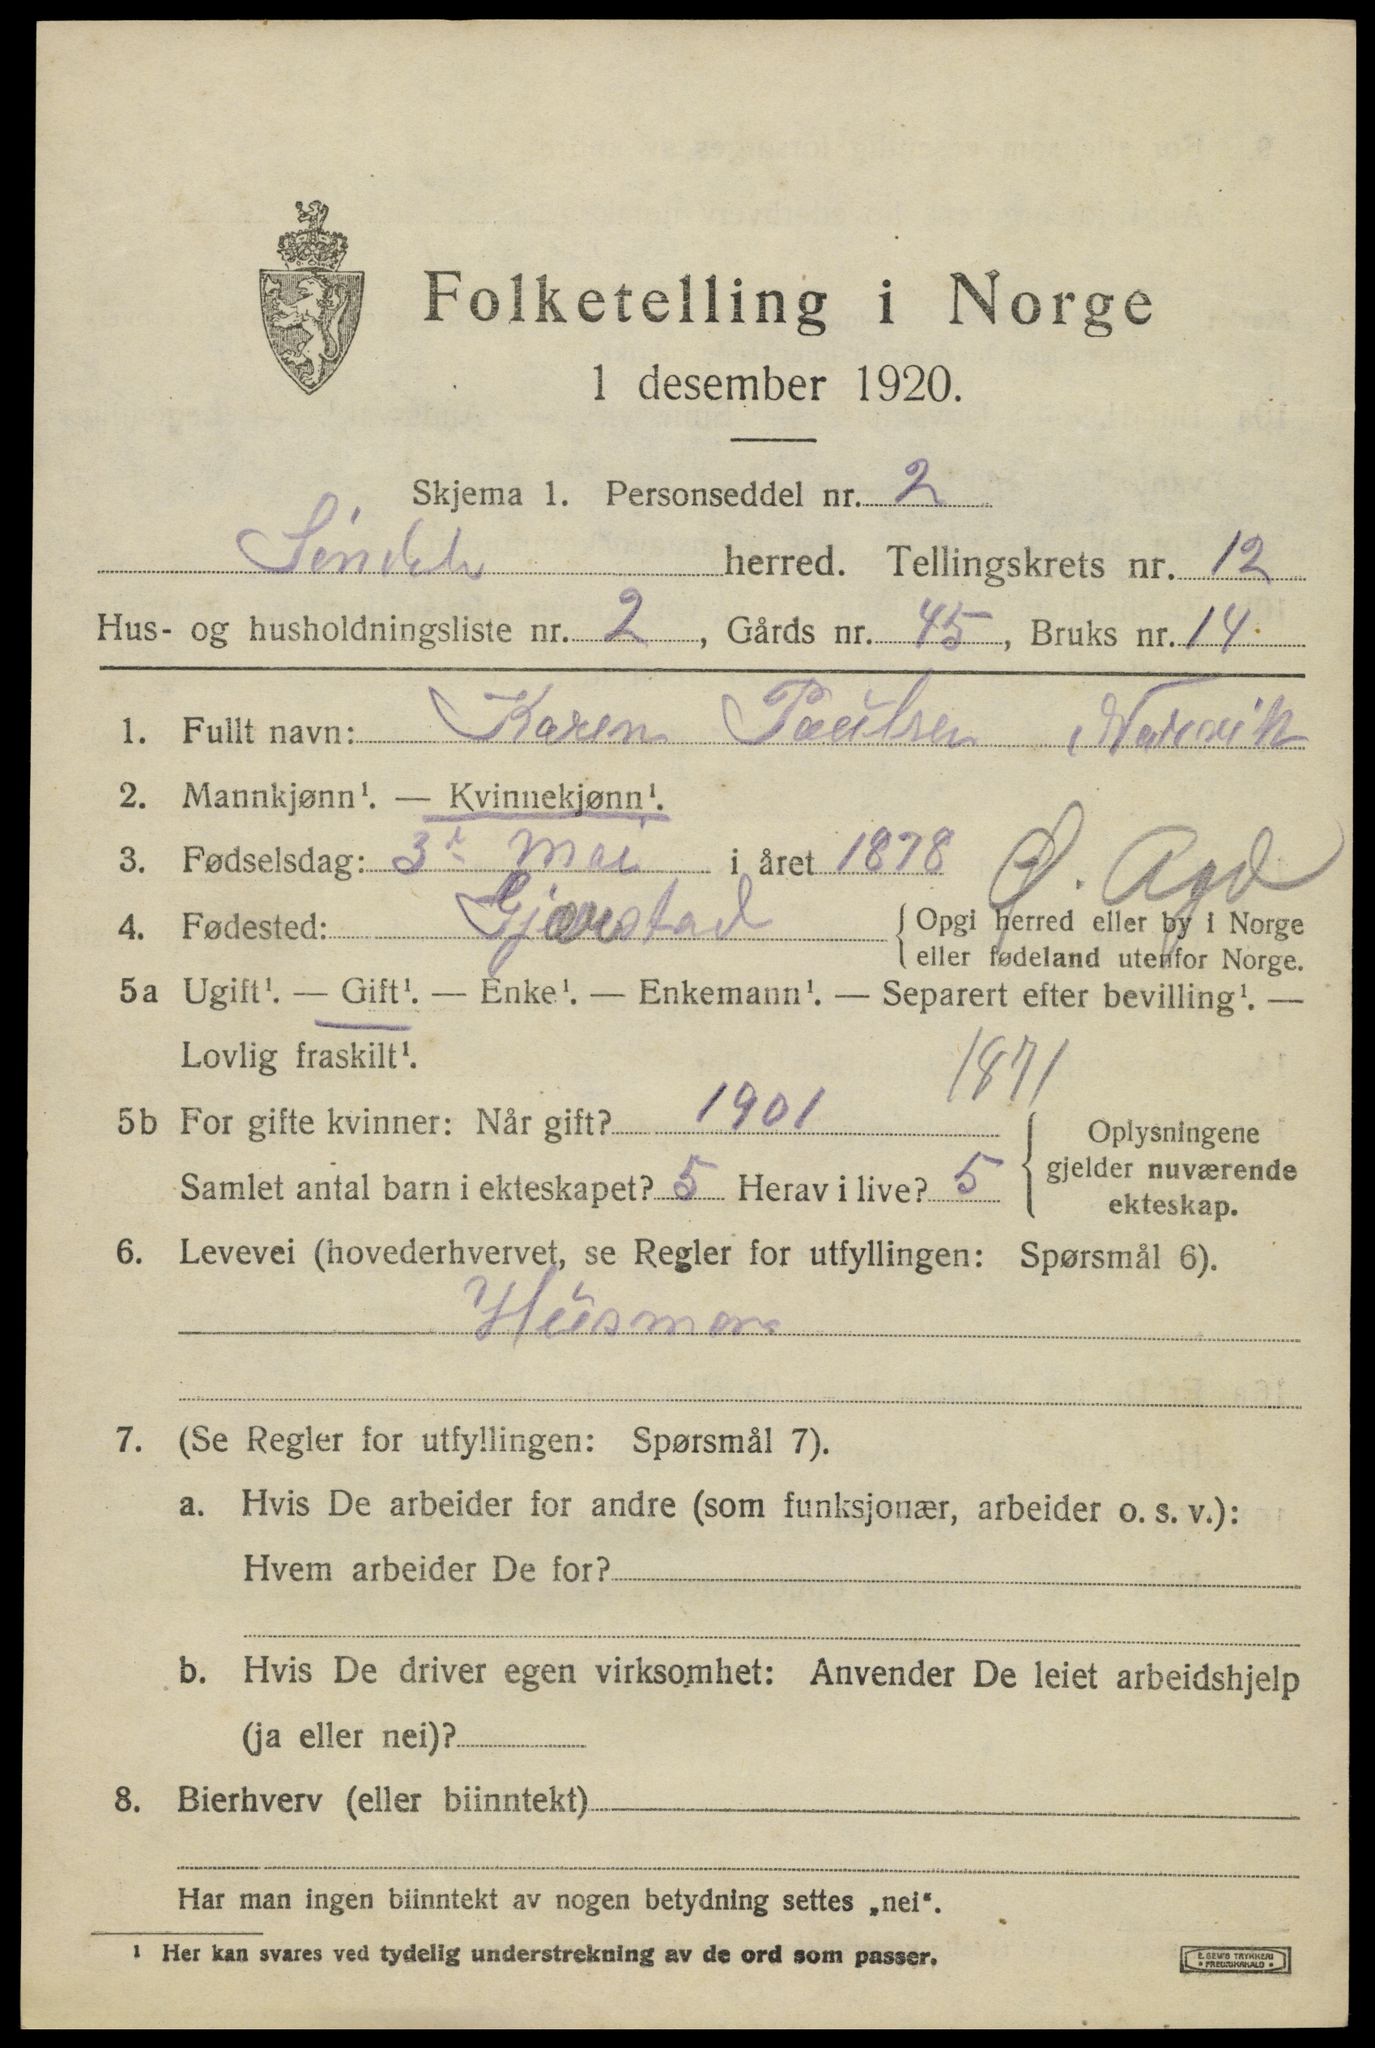 Folketelling i Norge
1 desember 1920.
Skjema 1. Personseddel nr. 2
Søndeled herred. Tellingskrets nr. 12
Hus- og husholdningsliste nr. 2, Gårds nr. 45, Bruks nr. 14
1. Fullt navn: Karen Paulsen Narvik
2. Mannkjønn¹. — Kvinnekjønn¹.
3. Fødselsdag: 3. mai i året 1878 Ø. Agd
4. Fødested: Gjerstad { Opgi herred eller by i Norge
eller fødeland utenfor Norge.
5a Ugift¹. — Gift¹. — Enke¹. — Enkemann¹. — Separert efter bevilling¹. —
Lovlig fraskilt¹.
1871
5b For gifte kvinner: Når gift? 1901
Samlet antal barn i ekteskapet? 5 Herav i live? 5
{ Oplysningene
gjelder nuværende
ekteskap.
6. Levevei (hovederhvervet, se Regler for utfyllingen: Spørsmål 6).
Husmor
7. (Se Regler for utfyllingen: Spørsmål 7).
a. Hvis De arbeider for andre (som funksjonær, arbeider o. s. v.):
Hvem arbeider De for?
b. Hvis De driver egen virksomhet: Anvender De leiet arbeidshjelp
(ja eller nei)?
8. Bierhverv (eller biinntekt)
Har man ingen biinntekt av nogen betydning settes „nei“.
¹ Her kan svares ved tydelig understrekning av de ord som passer.
E. SEM'S TRYKKERI
FREDRIKSHALD